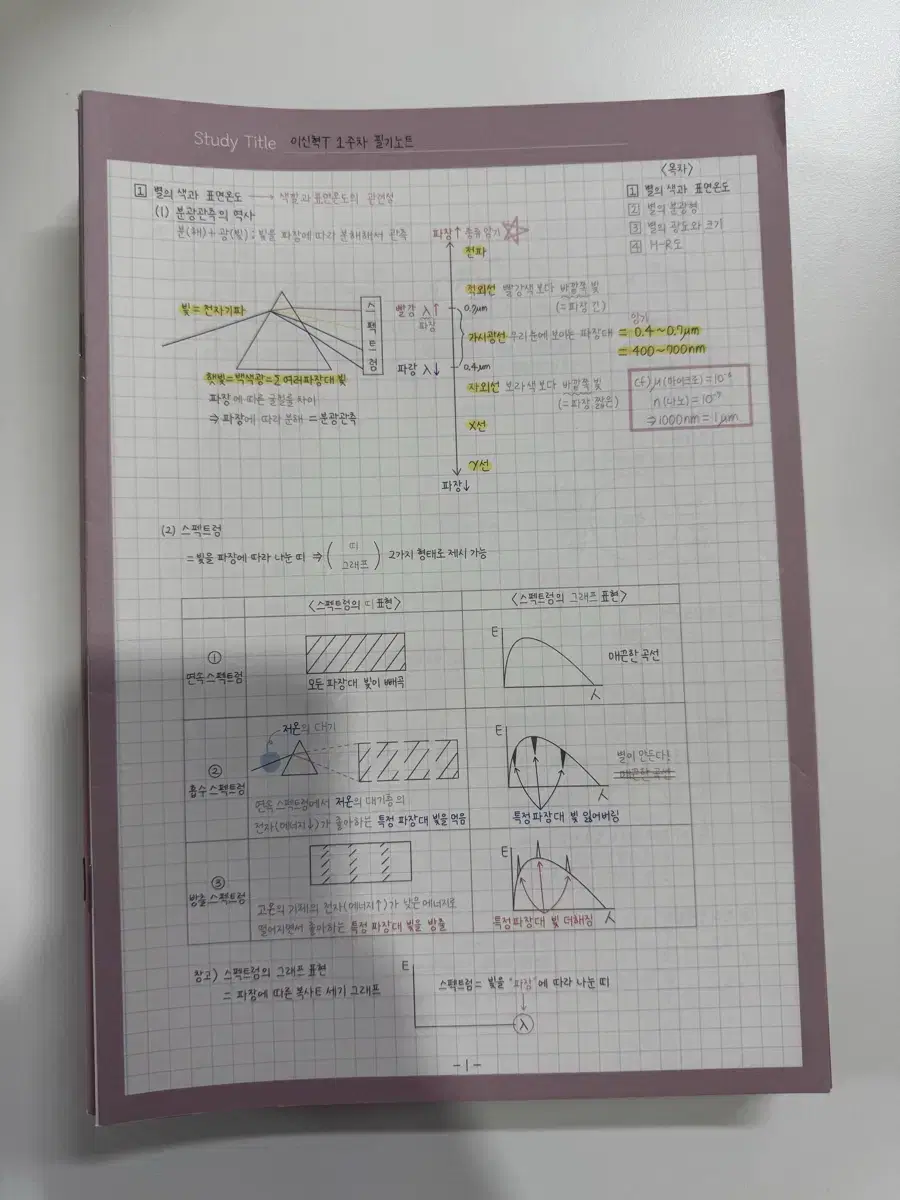 Study Title 이신혁T 1주차 필기노트
<목차>
1 별의 색과 표면온도
2 별의 분광형
3 별의 광도와 크기
4 H-R도
1 별의 색과 표면온도 → 색깔과 표면온도의 관련성
(1) 분광관측의 역사
분(해) + 광(빛) : 빛을 파장에 따라 분해해서 관측
빛 = 전자기파
스펙트럼
빨강 λ↑
파장
파랑 λ↓
햇빛 = 백색광 = Σ 여러파장대 빛
파장에 따른 굴절률 차이
⇒ 파장에 따라 분해 = 분광관측
파장↑ 종류 암기
전파
적외선 빨강색보다 바깥쪽 빛
(= 파장 긴)
0.7μm
가시광선 우리눈에 보이는 파장대 = 0.4~0.7μm
암기
= 400~700nm
0.4μm
자외선 보라색보다 바깥쪽 빛
(= 파장 짧은)
X선
γ선
파장↓
cf) μ(마이크로) = 10⁻⁶
n(나노) = 10⁻⁹
⇒ 1000nm = 1μm
(2) 스펙트럼
= 빛을 파장에 따라 나눈 띠 ⇒ ( 띠 그래프 ) 2가지 형태로 제시 가능
<스펙트럼의 띠 표현>
<스펙트럼의 그래프 표현>
①
연속 스펙트럼
모든 파장대 빛이 빼곡
E
λ
매끈한 곡선
②
흡수 스펙트럼
저온의 대기
연속 스펙트럼에서 저온의 대기층의
전자(에너지↓)가 좋아하는 특정 파장대 빛을 먹음
E
λ
별이 만든다!
매끈한 곡선
특정파장대 빛 잃어버림
③
방출 스펙트럼
고온의 기체의 전자(에너지↑)가 낮은 에너지로
떨어지면서 좋아하는 특정 파장대 빛을 방출
E
λ
특정파장대 빛 더해짐
참고) 스펙트럼의 그래프 표현
= 파장에 따른 복사E 세기 그래프
E
스펙트럼 = 빛을 "파장"에 따라 나눈 띠
λ
-1-